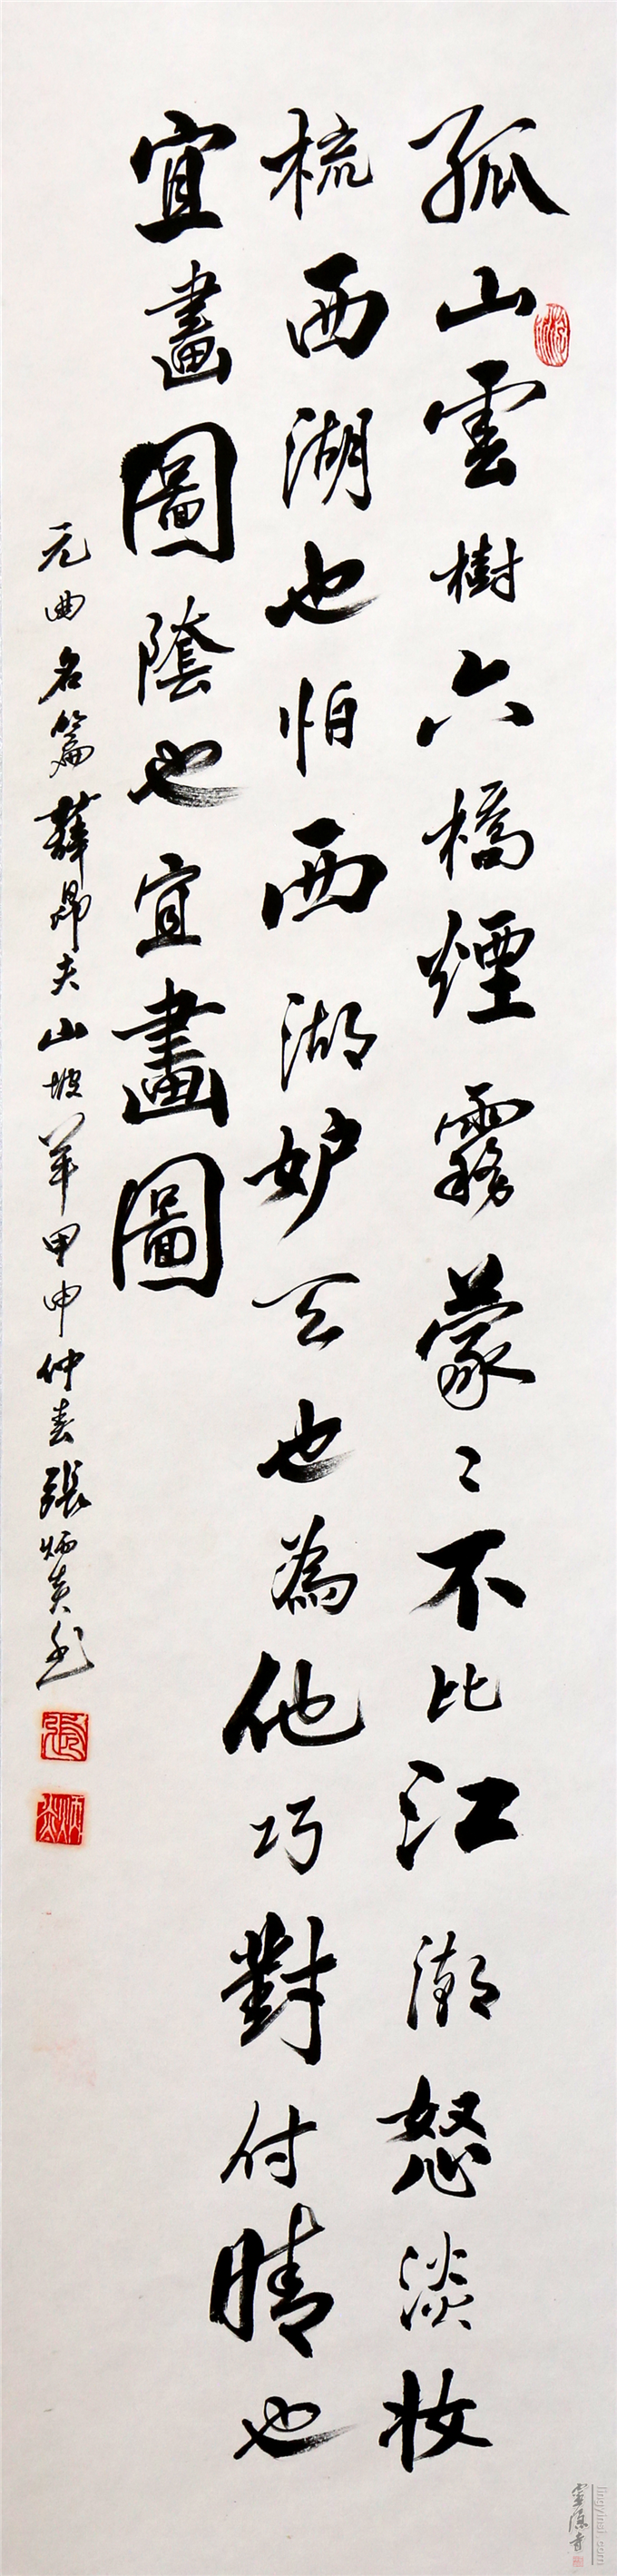 孤山雲樹六橋煙霧蒙〻不比江潮怒淡妆
梳西湖也怕西湖妒天也為他巧對付晴也
宜畫圖隂也宜畫圖
元曲名篇薛昂夫山坡羊甲申仲春張炳炎书
lingyinsi.com